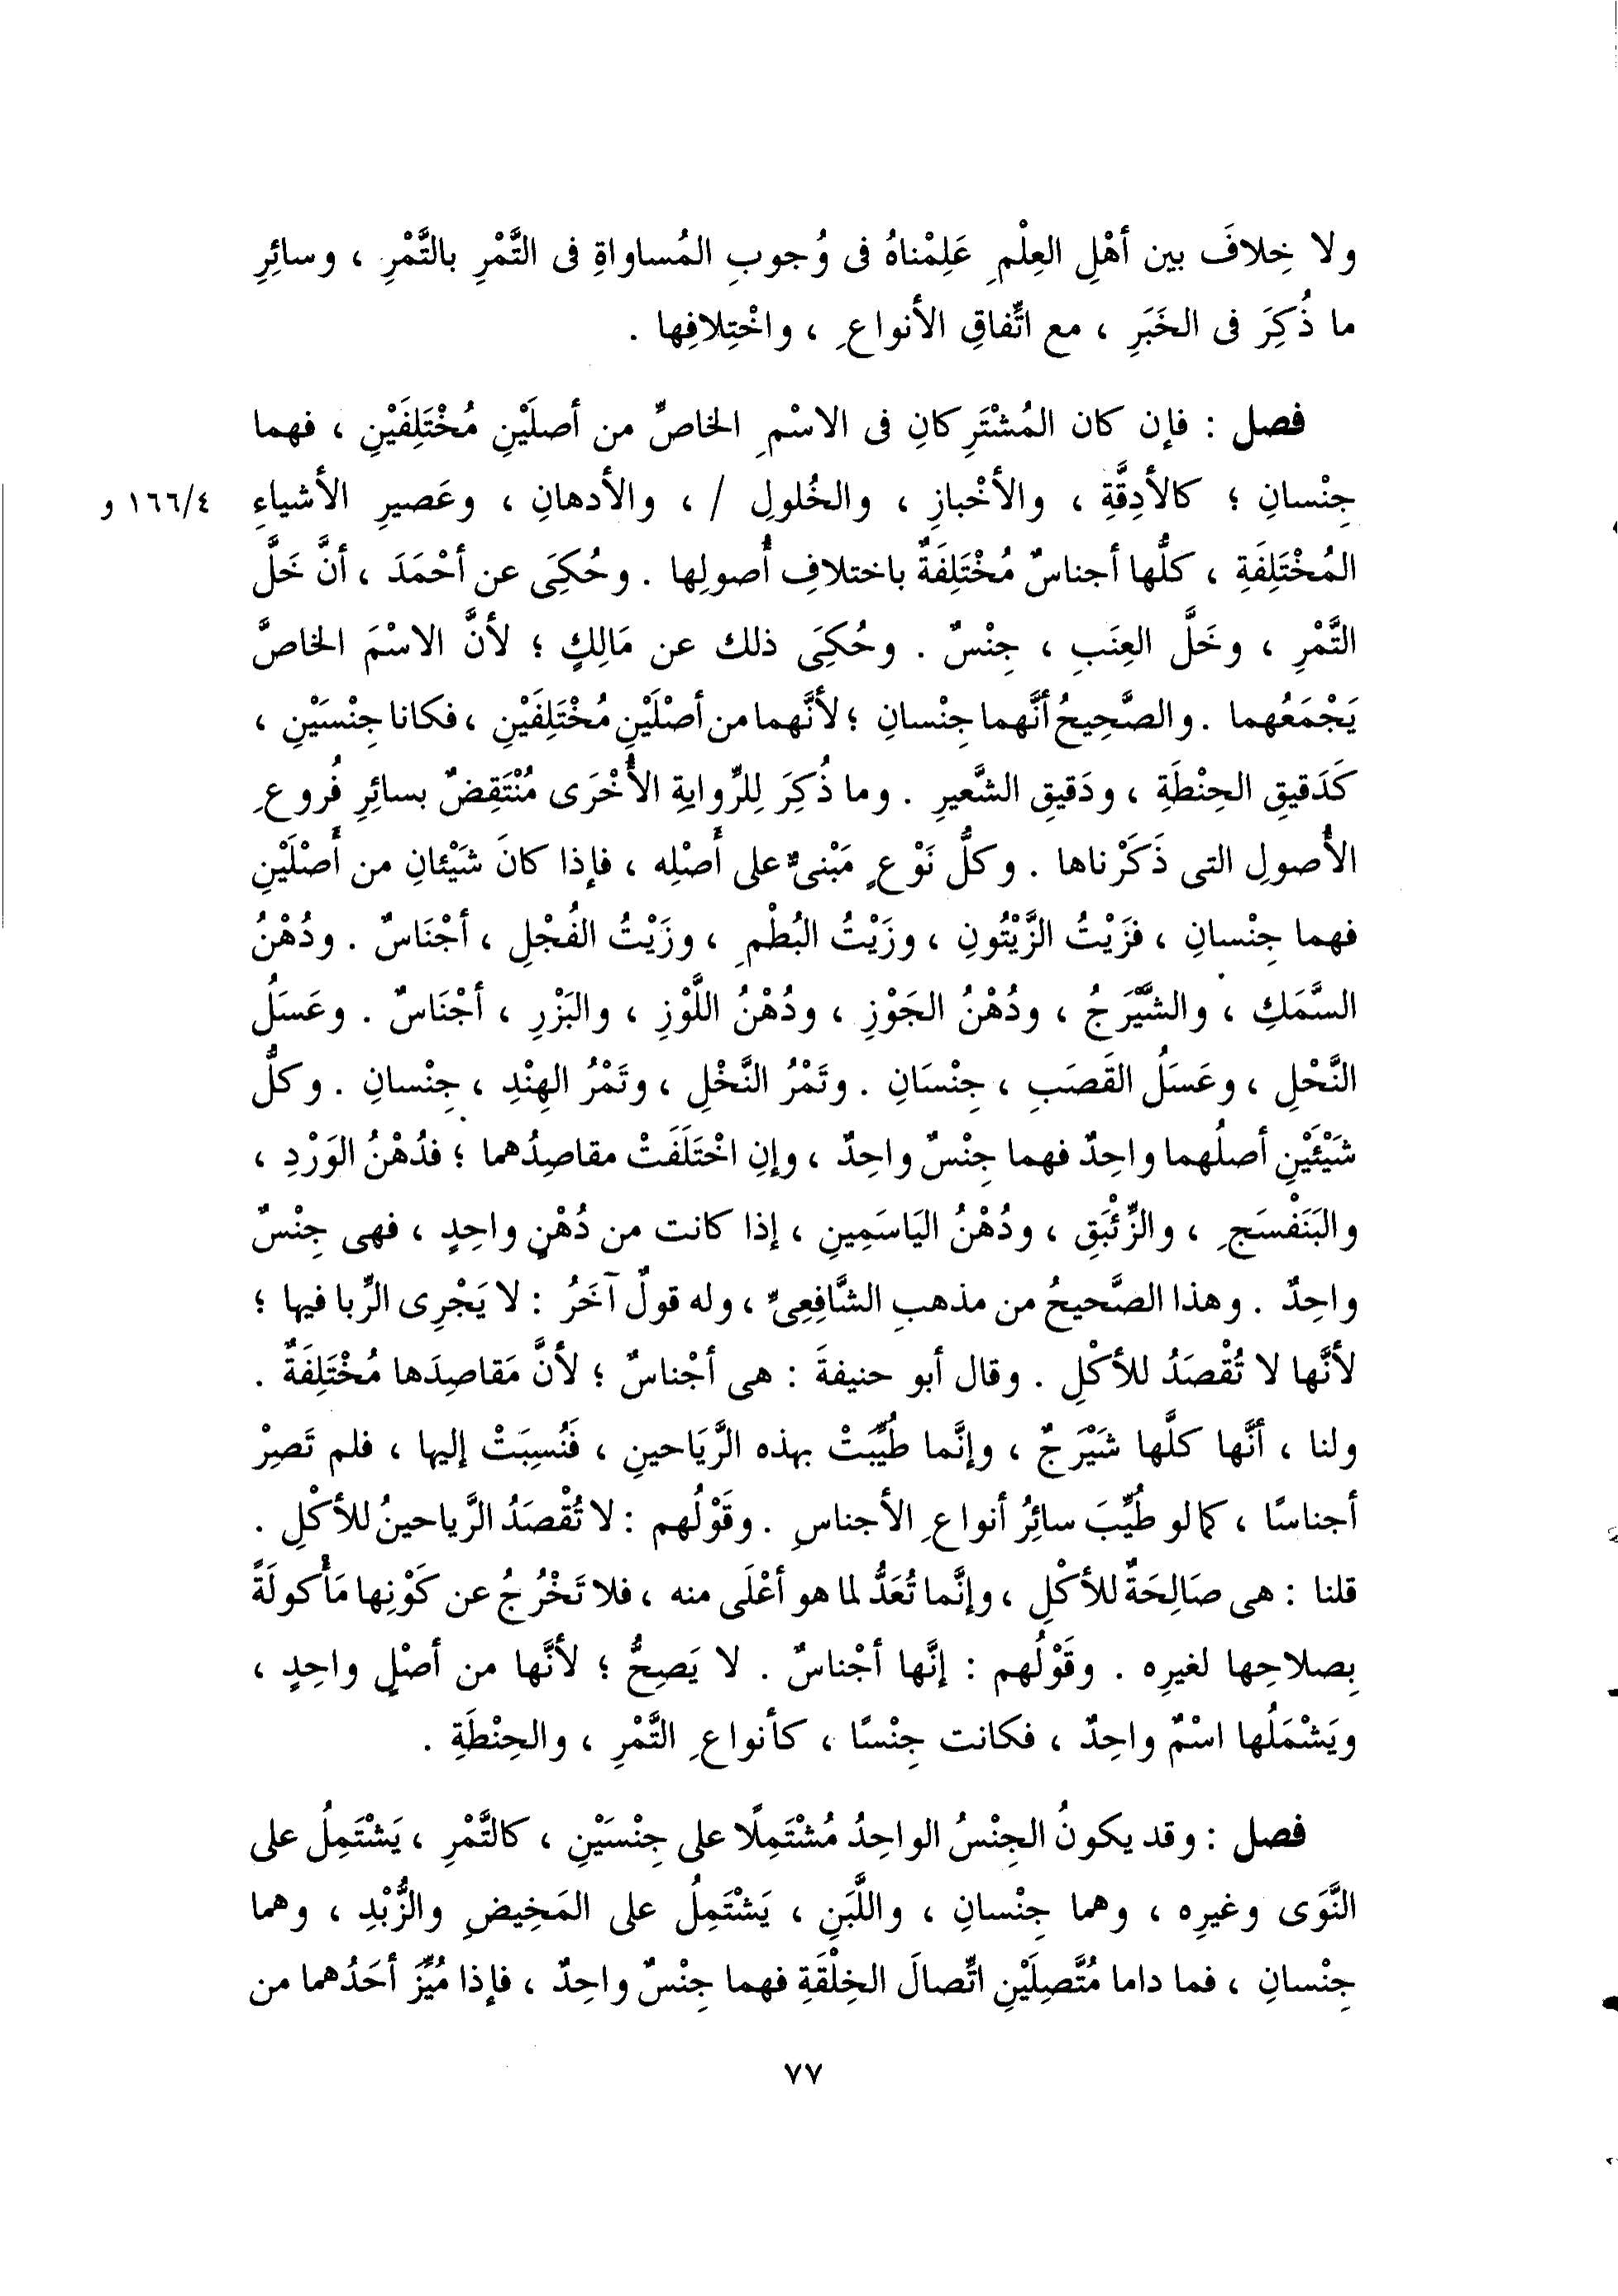 ولا خِلافَ بين أهْلِ العِلْمِ عَلِمْناهُ فى وُجوبِ المُساواةِ فى التَّمْرِ بالتَّمْرِ ، وسائِرِ
ما ذُكِرَ فى الخَبَرِ ، مع اتِّفاقِ الأنواعِ ، واخْتِلافِها .
فصل : فإن كان المُشْتَرِكانِ فى الاسْمِ الخاصِّ من أصلَيْنِ مُخْتَلِفَيْنِ ، فهما
جِنْسانِ ؛ كالأدِقَّةِ ، والأخْبازِ ، والخُلولِ / ، والأدهانِ ، وعَصيرِ الأشياءِ ١٦٦/٤ و
المُخْتَلِفَةِ ، كلُّها أجناسٌ مُخْتَلِفَةٌ باختلافِ أُصولِها . وحُكِىَ عن أحْمَدَ ، أنَّ خَلَّ
التَّمْرِ ، وخَلَّ العِنَبِ ، جِنْسٌ . وحُكِىَ ذلك عن مَالِكٍ ؛ لأنَّ الاسْمَ الخاصَّ
يَجْمَعُهما . والصَّحِيحُ أنَّهما جِنْسانِ ؛ لأنَّهما من أصْلَيْنِ مُخْتَلِفَيْنِ ، فكانا جِنْسَيْنِ ،
كَدَقيقِ الحِنْطَةِ ، ودَقيقِ الشَّعيرِ . وما ذُكِرَ لِلرِّوايةِ الأُخْرَى مُنْتَقِضٌ بسائِرِ فُروعِ
الأُصولِ التى ذَكَرْناها . وكلُّ نَوْعٍ مَبْنىٌّ على أَصْلِه ، فإذا كانَ شَيْئانِ من أَصْلَيْنِ
فهما جِنْسانِ ، فزَيْتُ الزَّيْتُونِ ، وزَيْتُ البُطْمِ ، وزَيْتُ الفُجْلِ ، أجْنَاسٌ . ودُهْنُ
السَّمَكِ ، والشَّيْرَجُ ، ودُهْنُ الجَوْزِ ، ودُهْنُ اللَّوْزِ ، والبَزْرِ ، أجْنَاسٌ . وعَسَلُ
النَّحْلِ ، وعَسَلُ القَصَبِ ، جِنْسَانِ . وتَمْرُ النَّخْلِ ، وتَمْرُ الهِنْدِ ، جِنْسانِ . وكلُّ
شَيْئَيْنِ أصلُهما واحِدٌ فهما جِنْسٌ واحِدٌ ، وإنِ اخْتَلَفَتْ مقاصِدُهما ؛ فدُهْنُ الوَرْدِ ،
والبَنَفْسَجِ ، والزِّئْبَقِ ، ودُهْنُ اليَاسَمِينِ ، إذا كانت من دُهْنٍ واحِدٍ ، فهى جِنْسٌ
واحِدٌ . وهذا الصَّحيحُ من مذهبِ الشَّافِعِىِّ ، وله قولٌ آخَرُ : لا يَجْرِى الرِّبا فيها ؛
لأنَّها لا تُقْصَدُ للأكْلِ . وقال أبو حنيفةَ : هى أجْناسٌ ؛ لأنَّ مَقاصِدَها مُخْتَلِفَةٌ .
ولنا ، أنَّها كلَّها شَيْرَجٌ ، وإنَّما طُيِّبَتْ بهذه الرَّيَاحينِ ، فَنُسِبَتْ إليها ، فلم تَصِرْ
أجناسًا ، كما لو طُيِّبَ سائِرُ أنواعِ الأجناسِ . وقَوْلُهم : لا تُقْصَدُ الرَّياحينُ للأكْلِ .
قلنا : هى صَالِحَةٌ للأكْلِ ، وإنَّما تُعَدُّ لما هو أعْلَى منه ، فلا تَخْرُجُ عن كَوْنِها مَأْكولَةً
بِصلاحِها لغيرِه . وقَوْلُهم : إنَّها أجْناسٌ . لا يَصِحُّ ؛ لأنَّها من أصْلٍ واحِدٍ ،
ويَشْمَلُها اسْمٌ واحِدٌ ، فكانت جِنْسًا ، كأنواعِ التَّمْرِ ، والحِنْطَةِ .
فصل : وقد يكونُ الجِنْسُ الواحِدُ مُشْتَمِلًا على جِنْسَيْنِ ، كالتَّمْرِ ، يَشْتَمِلُ على
النَّوَى وغيرِه ، وهما جِنْسانِ ، واللَّبَنِ ، يَشْتَمِلُ على المَخِيضِ والزُّبْدِ ، وهما
جِنْسانِ ، فما داما مُتَّصِلَيْنِ اتِّصالَ الخِلْقَةِ فهما جِنْسٌ واحِدٌ ، فإذا مُيِّزَ أحَدُهما من
٧٧